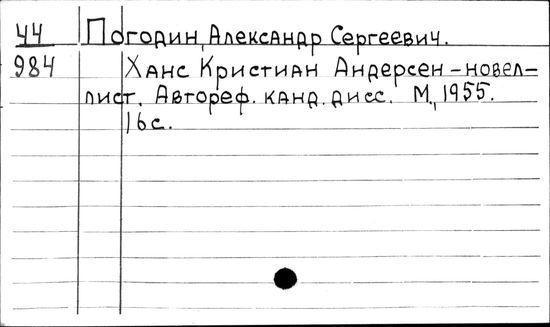 44 Погодин, Александр Сергеевич.
984 Ханс Кристиан Андерсен – новел-
лист. Автореф. канд. дисс. М., 1955.
16 с.